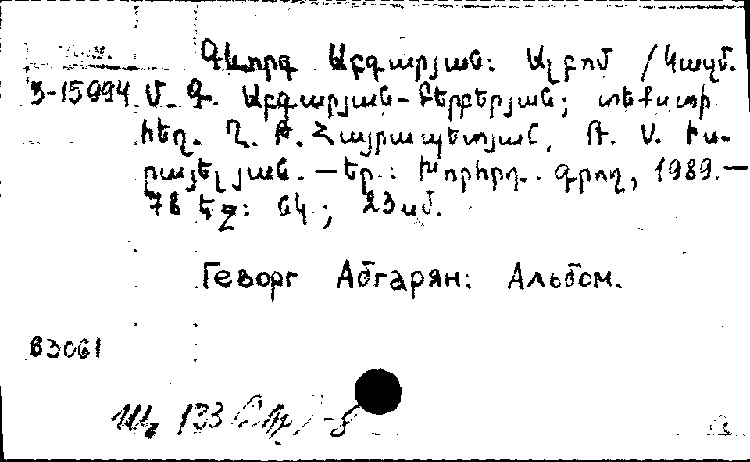 Գևորգ Աբգարյան: Ալբոմ /Կազմ.
3-15994 Մ. Գ. Աբգարյան-Բերբերյան; տեքստի
հեղ. Ղ. Թ. Հայրապետյան, Թ. Ս. Իս-
րայելյան. — Եր.: Խորհրդ. գրող, 1989.—
78 էջ: նկ; 23սմ.
Геворг Абгарян: Альбом.
83061
133